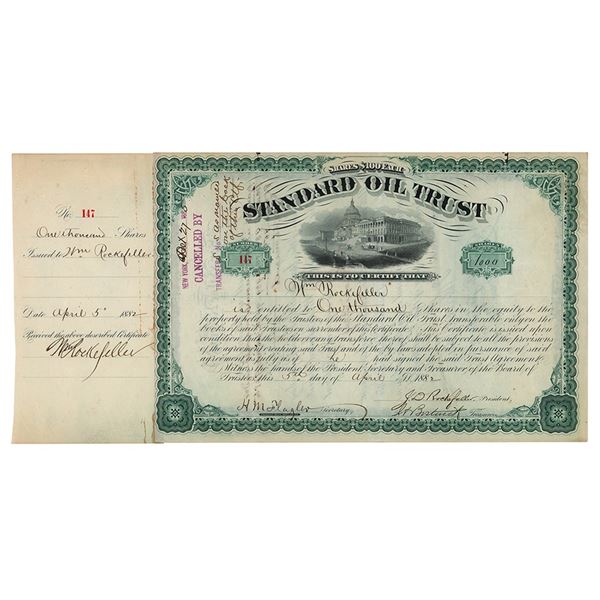 No. 147
One thousand Shares
Issued to Wm Rockefeller
Date April 5th 1882
Received the above described Certificate
Wm Rockefeller
NEW YORK, Oct 27
CANCELLED BY
TRANSFER
on the back
SHARES $100 EACH
STANDARD OIL TRUST
147
1000
THIS IS TO CERTIFY THAT
Wm Rockefeller
is entitled to One thousand shares in the equity to the
property held by the Trustees of the Standard Oil Trust, transferable only on the
books of said Trustees on surrender of this Certificate. This Certificate is issued upon
condition that the holder or any transferee thereof shall be subject to all the provisions
of the agreement creating said Trust and of the by-laws adopted in pursuance of said
agreement as fully as if he had signed the said Trust Agreement.
Witness the hands of the President Secretary and Treasurer of the Board of
Trustees this 5th day of April 1882
H M Flagler Secretary.
J D Rockefeller, President,
Treasurer.